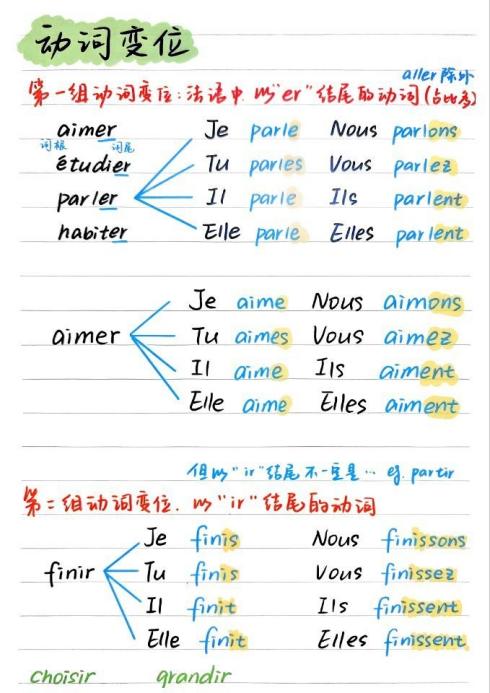 动词变位
aller 除外
第一组动词变位:法语中,以"er"结尾的动词(占比多)
aimer Je parle Nous parlons
词根 词尾
étudier Tu parles Vous parlez
parler Il parle Ils parlent
habiter Elle parle Elles parlent
Je aime Nous aimons
aimer Tu aimes Vous aimez
Il aime Ils aiment
Elle aime Elles aiment
但以"ir"结尾不一定是… eg. partir
第二组动词变位.以"ir"结尾的动词
Je finis Nous finissons
finir Tu finis Vous finissez
Il finit Ils finissent
Elle finit Elles finissent
choisir grandir